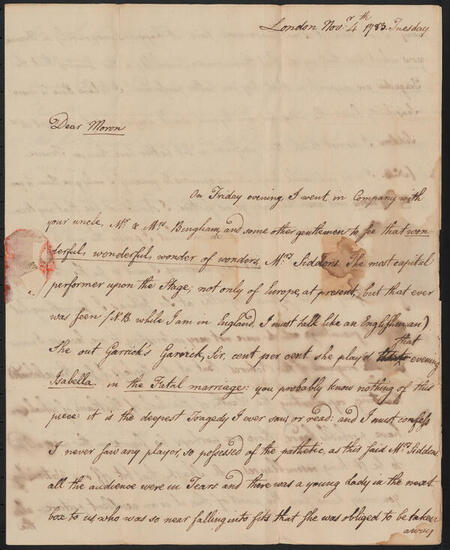 London Novr. 4th 1783 Tuesday
Dear Moron
On Friday evening, I went, in Company with
your uncle, Mr. & Mrs. Bingham, and some other gentlemen to see that won-
derful, wonderful, wonder of wonders, Mrs. Siddons. The most capital
performer upon the Stage; not only of Europe, at present, but that ever
was seen (N.B. while I am in England, I must talk like an Englishman)
She out Garrick's Garrick, Sir, cent per cent she play'd that evening
Isabella in the Fatal marriage: you probably know nothing of this
piece: it is the deepest Tragedy I ever saw or read: and I must confess
I never saw any player, so possessed of the pathetic, as this said Mrs. Siddons
all the audience were in Tears and there was a young Lady in the next
box to us who was so near falling into fits that she was obliged to be taken
away